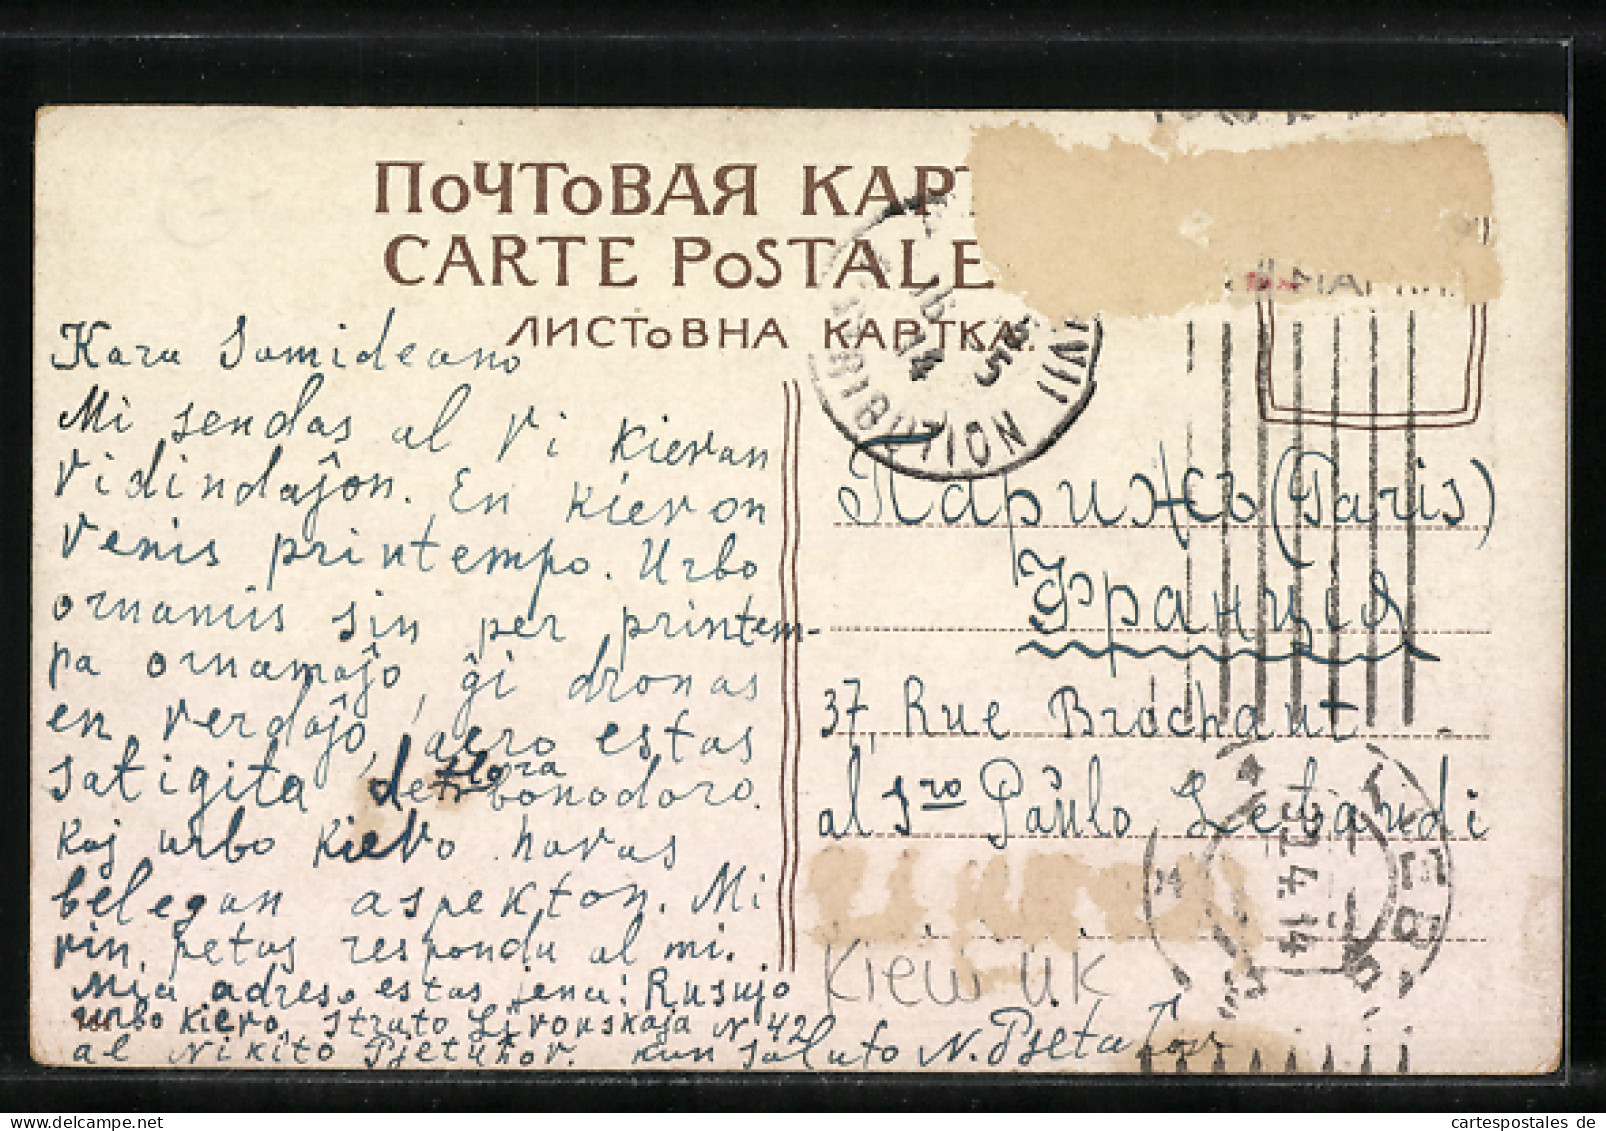 ПОЧТОВАЯ КАР
CARTE POSTALE
ЛИСТОВНА КАРТКА.
МАРКИ
Kara Samideano
Mi sendas al Vi Kievan
Vidindaĵon. En Kievon
venis printempo. Urbo
ornamis sin per printem-
pa ornamaĵo, ĝi dronas
en verdaĵo, aero estas
satigita de flora bonodoro.
Kaj urbo Kievo havas
belegan aspekton. Mi
vin petas respondu al mi.
Mia adreso estas jena: Rusujo
urbo Kievo, strato Livovskaja N 42
al Nikito Pjetuĥov. kun saluto N. Pjetuĥov
16 55
14
DISTRIBUTION
XVII
Парижъ (Paris)
Франція
37, Rue Brochant.
al Sro Paŭlo
КІЕВЪ
3.4.14
Kiew UK
cartespostales de